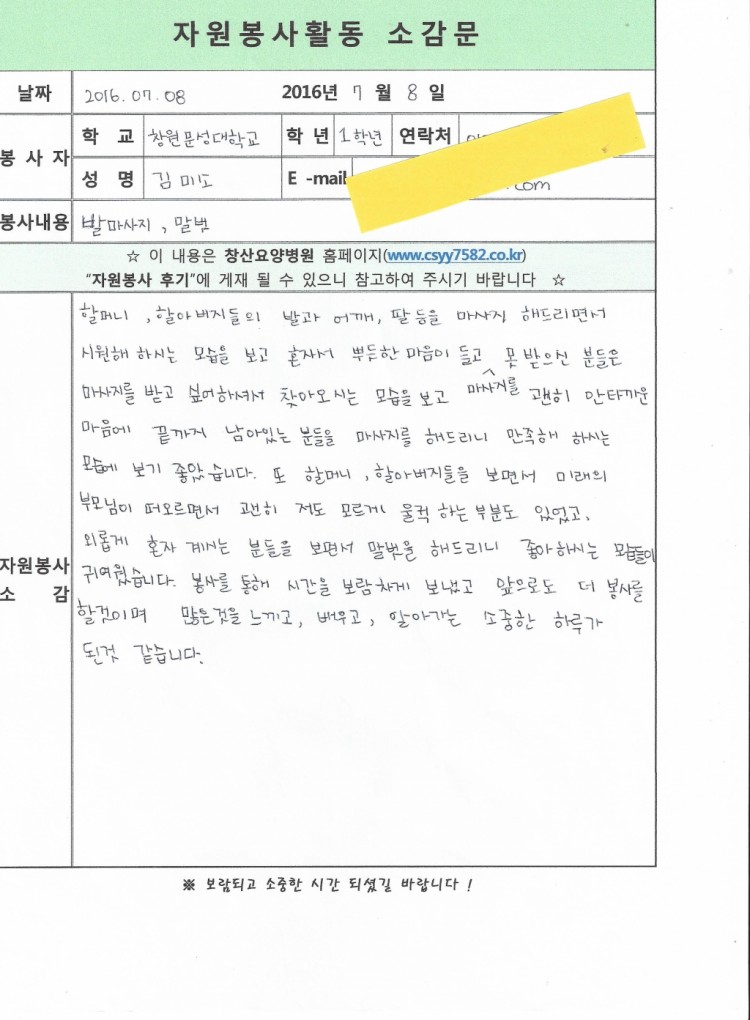 자원봉사활동 소감문
날짜 2016.07.08 2016년 7 월 8 일
봉 사 자
학 교 창원문성대학교 학 년 1학년 연락처
성 명 김미도 E -mail .com
봉사내용 발마사지, 말벗
☆ 이 내용은 창산요양병원 홈페이지(www.csyy7582.co.kr)
"자원봉사 후기"에 게재 될 수 있으니 참고하여 주시기 바랍니다 ☆
자원봉사
소 감
할머니, 할아버지들의 발과 어깨, 팔 등을 마사지 해드리면서
시원해 하시는 모습을 보고 혼자서 뿌듯한 마음이 들고 못 받으신 분들은
마사지를 받고 싶어하셔서 찾아오시는 모습을보고 마사지를 괜히 안타까운
마음에 끝까지 남아있는 분들을 마사지를 해드리니 만족해 하시는
모습에 보기 좋았습니다. 또 할머니, 할아버지들을 보면서 미래의
부모님이 떠오르면서 괜히 저도 모르게 울컥 하는부분도 있었고,
외롭게 혼자 계시는 분들을 보면서 말벗을 해드리니 좋아하시는 모습들이
귀여웠습니다. 봉사를 통해 시간을 보람차게 보냈고 앞으로도 더 봉사를
할것이며 많은것을 느끼고, 배우고, 알아가는 소중한 하루가
된것 같습니다.
※ 보람되고 소중한 시간 되셨길 바랍니다 !